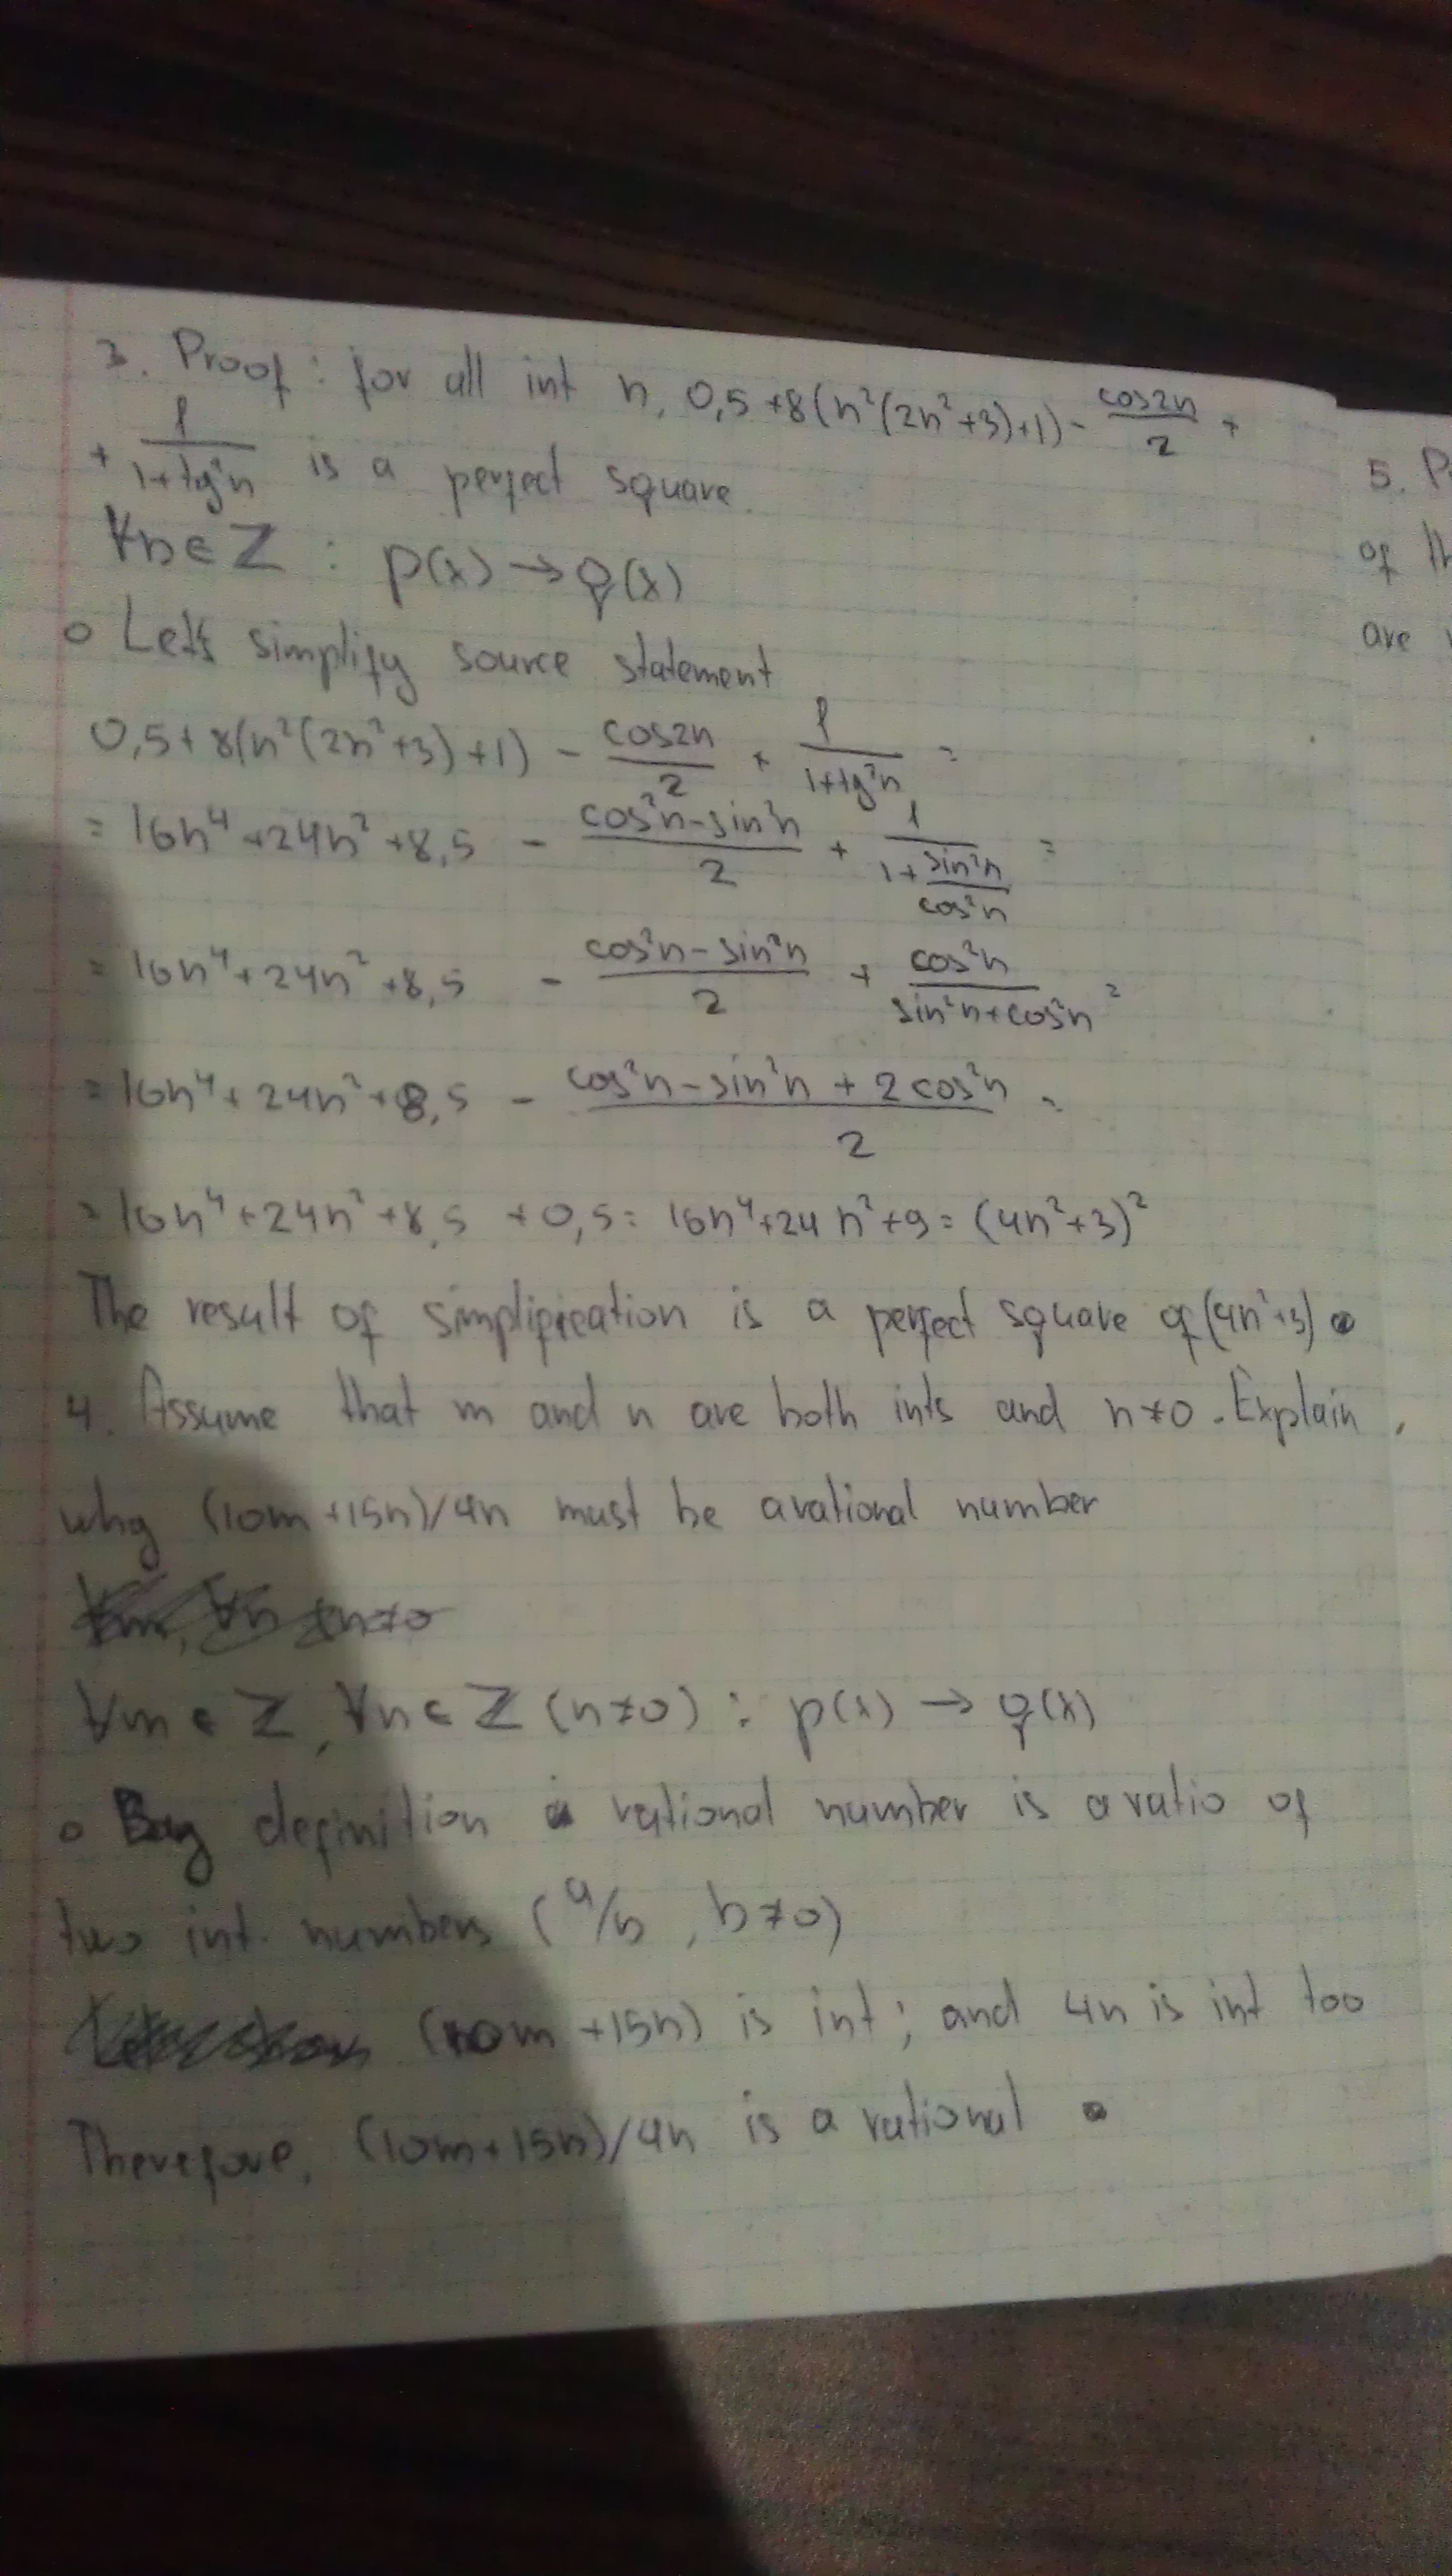 3. Proof: for all int n, 0,5+8(n²(2n²+3)+1) - cos2n/2 +
+ 1/(1+tg²n) is a perfect square.
∀n∈Z : p(x)→q(x)
o Let's simplify source statement
0,5+8(n²(2n²+3)+1) - cos2n/2 + 1/(1+tg²n) =
= 16n⁴+24n²+8,5 - (cos²n-sin²n)/2 + 1/(1+sin²n/cos²n) =
= 16n⁴+24n²+8,5 - (cos²n-sin²n)/2 + cos²n/(sin²n+cos²n) =
= 16n⁴+24n²+8,5 - (cos²n-sin²n+2cos²n)/2 =
= 16n⁴+24n²+8,5 +0,5 = 16n⁴+24n²+9 = (4n²+3)²
The result of simplipication is a perfect square of (4n²+3)
4. Assume that m and n are both ints and n≠0. Explain,
why (10m+15n)/4n must be a rational number
∀m∈Z, ∀n∈Z (n≠0) : p(x) → q(x)
o By definition a rational number is a ratio of
two int. numbers (a/b, b≠0)
(10m+15n) is int; and 4n is int too
Therefore, (10m+15n)/4n is a rational
5. P
of th
are